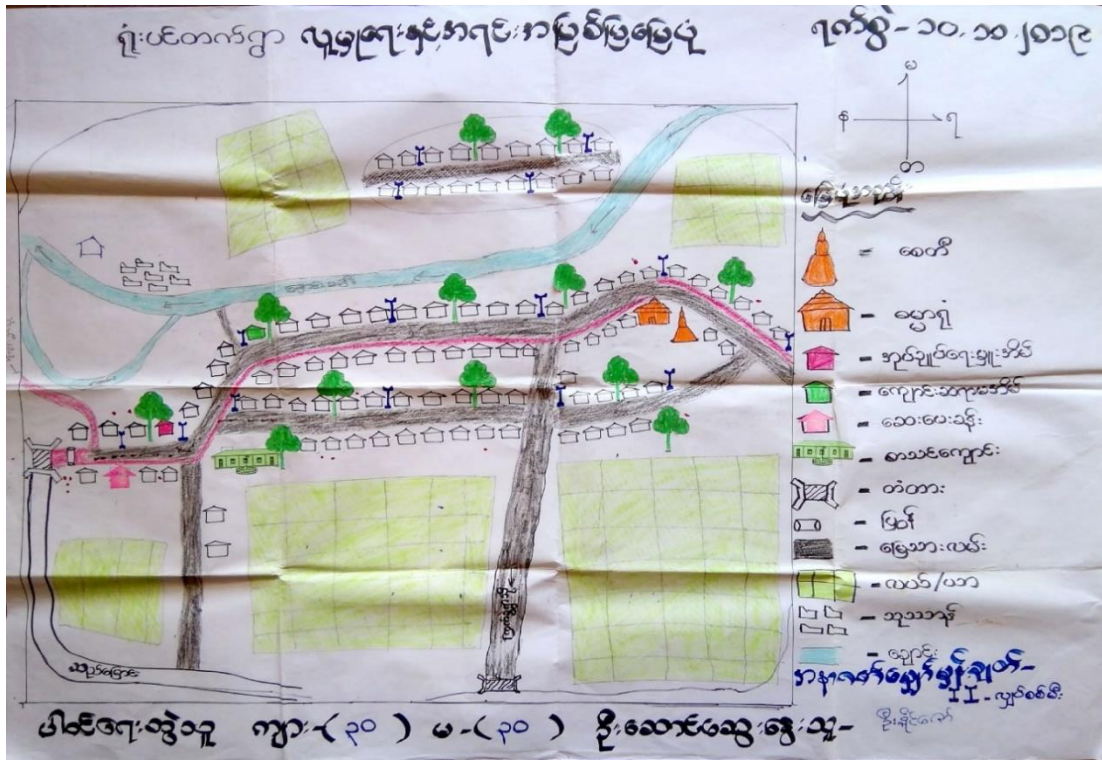 ရုံးပင်တက်ရွာ လူမှုရေးနှင့်အရင်းအမြစ်ပြမြေပုံ
ရက်စွဲ - ၁၀.၁၁.၂၀၁၉
မ
န
ရ
တ
မြေပုံညွှန်း
= စေတီ
- ဓမ္မာရုံ
- အုပ်ချုပ်ရေးမှူးအိမ်
- ကျောင်းဆရာမအိမ်
- ဆေးပေးခန်း
- စာသင်ကျောင်း
- တံတား
- ပြွန်
- မြေသားလမ်း
- လယ်/ယာ
- သုဿာန်
- ချောင်း
အနာဂတ်မျှော်မှန်းချက်-
- လျှပ်စစ်မီး
ဆည်မြောင်း
ပါဝင်ဆွေးနွေးသူ ကျား-(၃၀) မ-(၃၀) ဦးဆောင်ဆွေးနွေးသူ-
ဦးခိုင်ဇော်